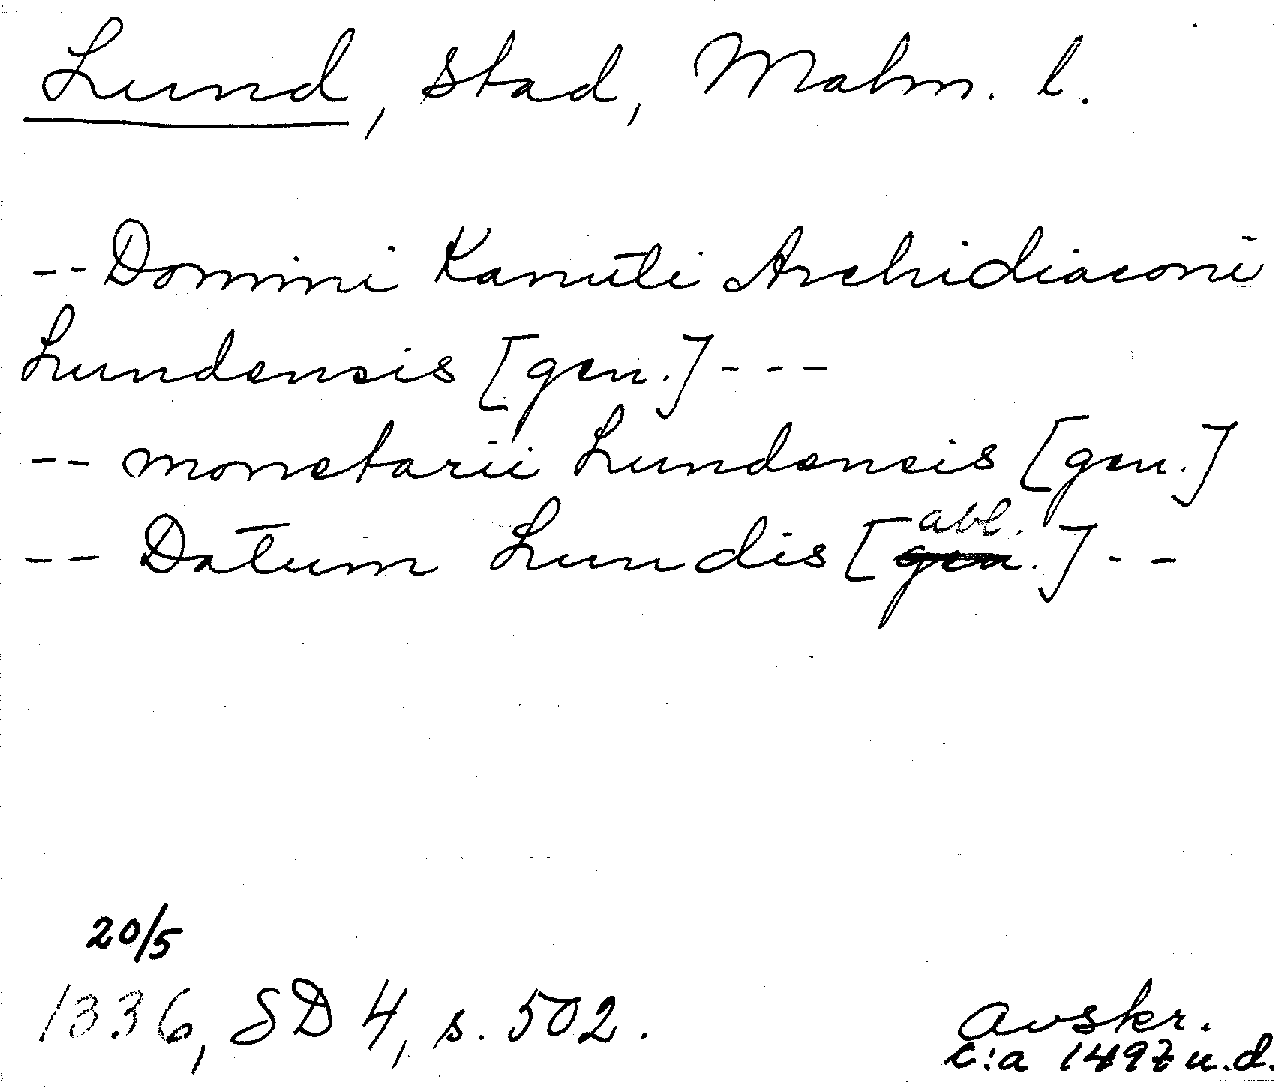 Lund, stad, Malm. l.
-- Domini Kanuti Archidiaconi
Lundensis [gen.] ---
-- monetarii Lundensis [gen.]
-- Datum Lundis [abl.] --
20/5
1336, SD 4, s. 502.
avskr.
c:a 1497 u.d.